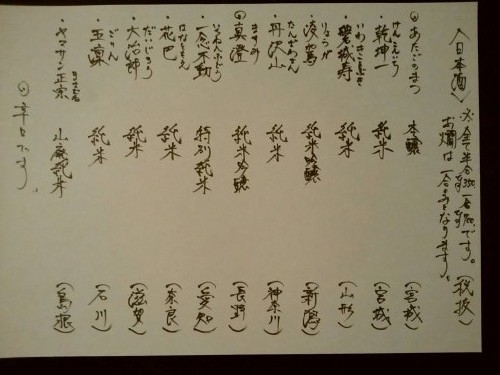 〈日本酒〉※全て半合 です。(税抜)
お燗は一合からとなります。
◎あたごのまつ 本醸 (宮城)
けんこんいち
・乾坤一 純米 (宮城)
いわきことぶき
・磐城壽 純米 (山形)
りょうが
・凌駕 純米吟醸 (新潟)
たんざわさん
・丹沢山 純米 (神奈川)
ますみ
◎真澄 純米吟醸 (長野)
いちねんふどう
・一念不動 特別純米 (愛知)
はなともえ
・花巴 純米 (奈良)
だいじょうし
・大治郎 純米 (滋賀)
・玉 純米 (石川)
・ヤマサン正宗 山廃純米 (島根)
◎辛口です。